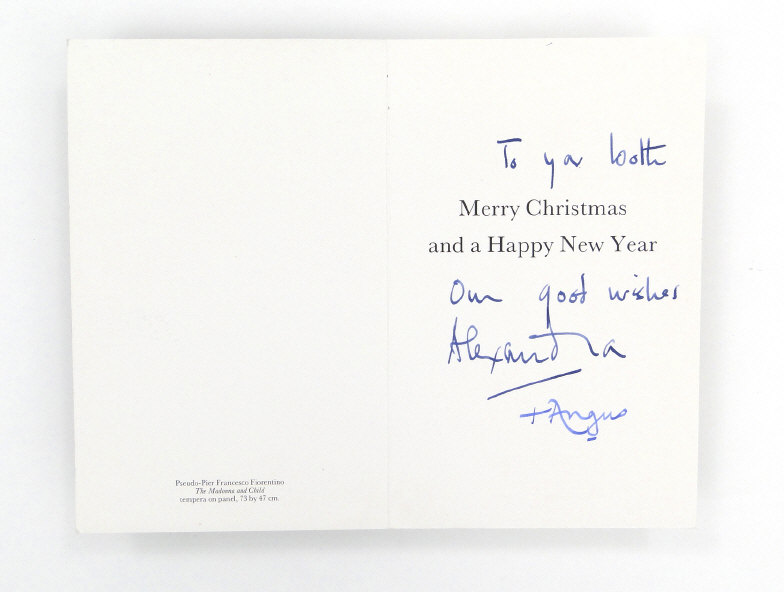 Pseudo-Pier Francesco Fiorentino
The Madonna and Child
tempera on panel, 73 by 47 cm.
To you both
Merry Christmas
and a Happy New Year
Our good wishes
Alexandra
+ Angus